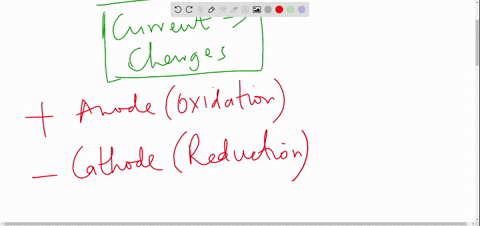 Current →
Charges
+ Anode (Oxidation)
- Cathode (Reduction)